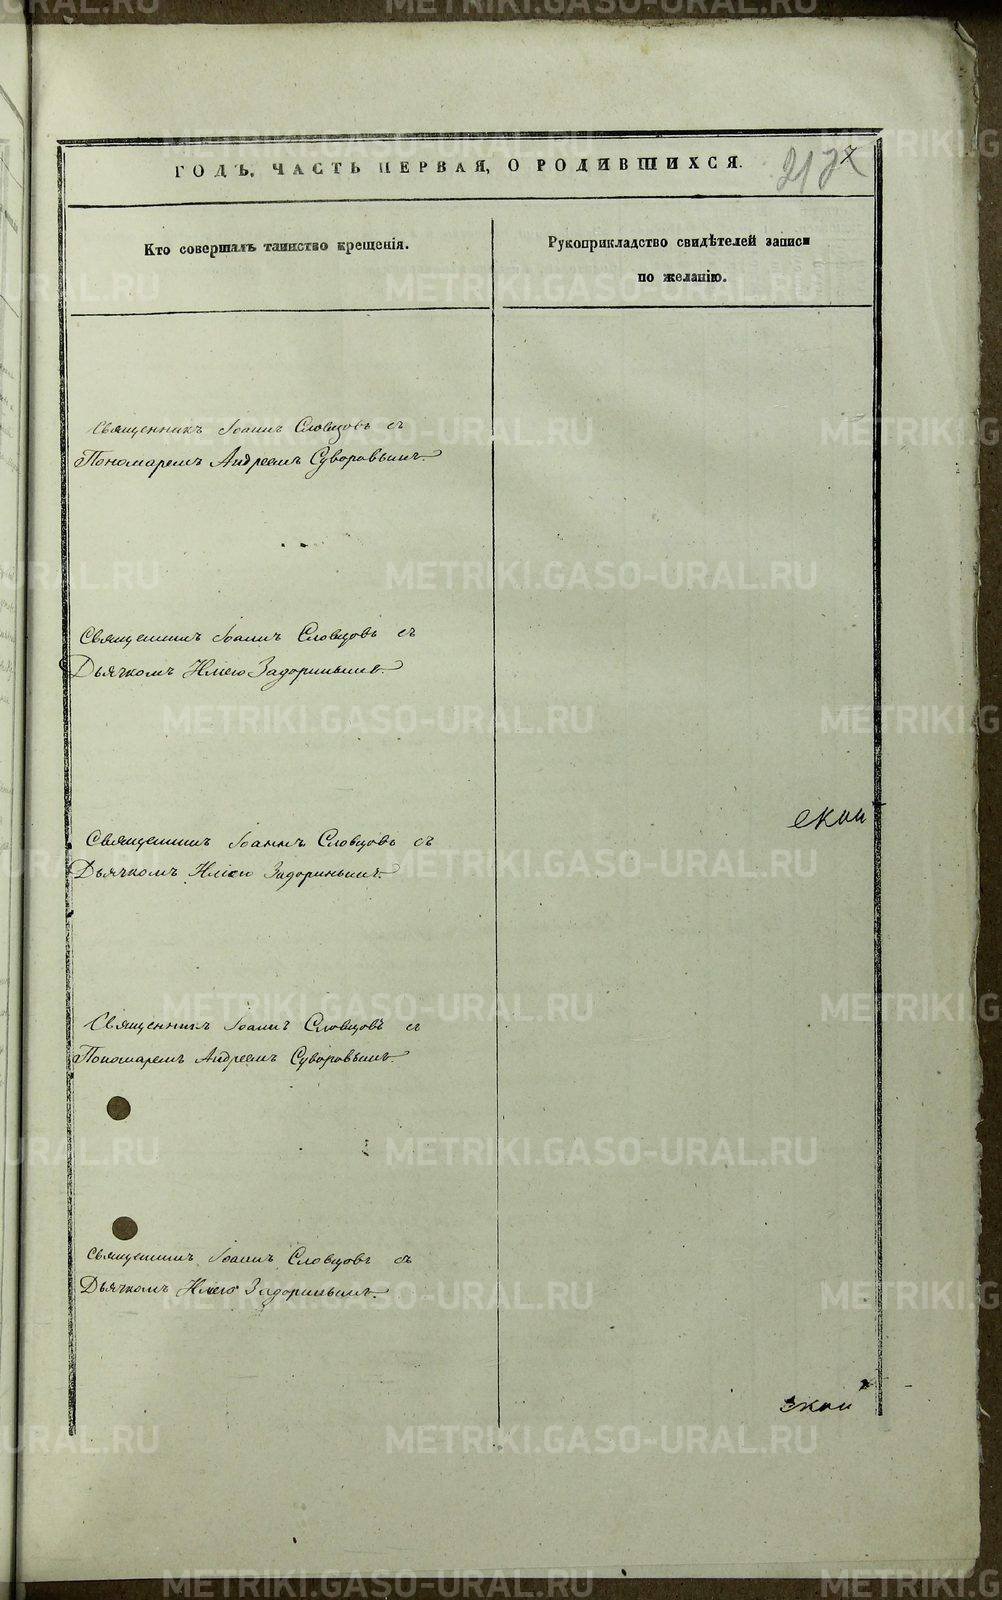 ГОДЪ, ЧАСТЬ ПЕРВАЯ, О РОДИВШИХСЯ.
Кто совершалъ таинство крещенія.
Рукоприкладство свидѣтелей записи
по желанію.
Священникъ Іоаннъ Словцовъ съ
Пономаремъ Андреемъ Суворовымъ.
Священникъ Іоаннъ Словцовъ съ
Дьячкомъ Задоринымъ.
Священникъ Іоаннъ Словцовъ съ
Дьячкомъ Задоринымъ.
Священникъ Іоаннъ Словцовъ съ
Пономаремъ Андреемъ Суворовымъ.
Священникъ Іоаннъ Словцовъ съ
Дьячкомъ Задоринымъ.
METRIKI.GASO-URAL.RU